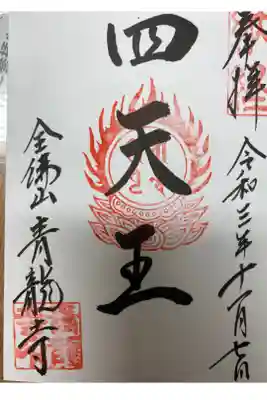 奉拝
令和三年十一月七日
四天王
金佛山 青龍寺